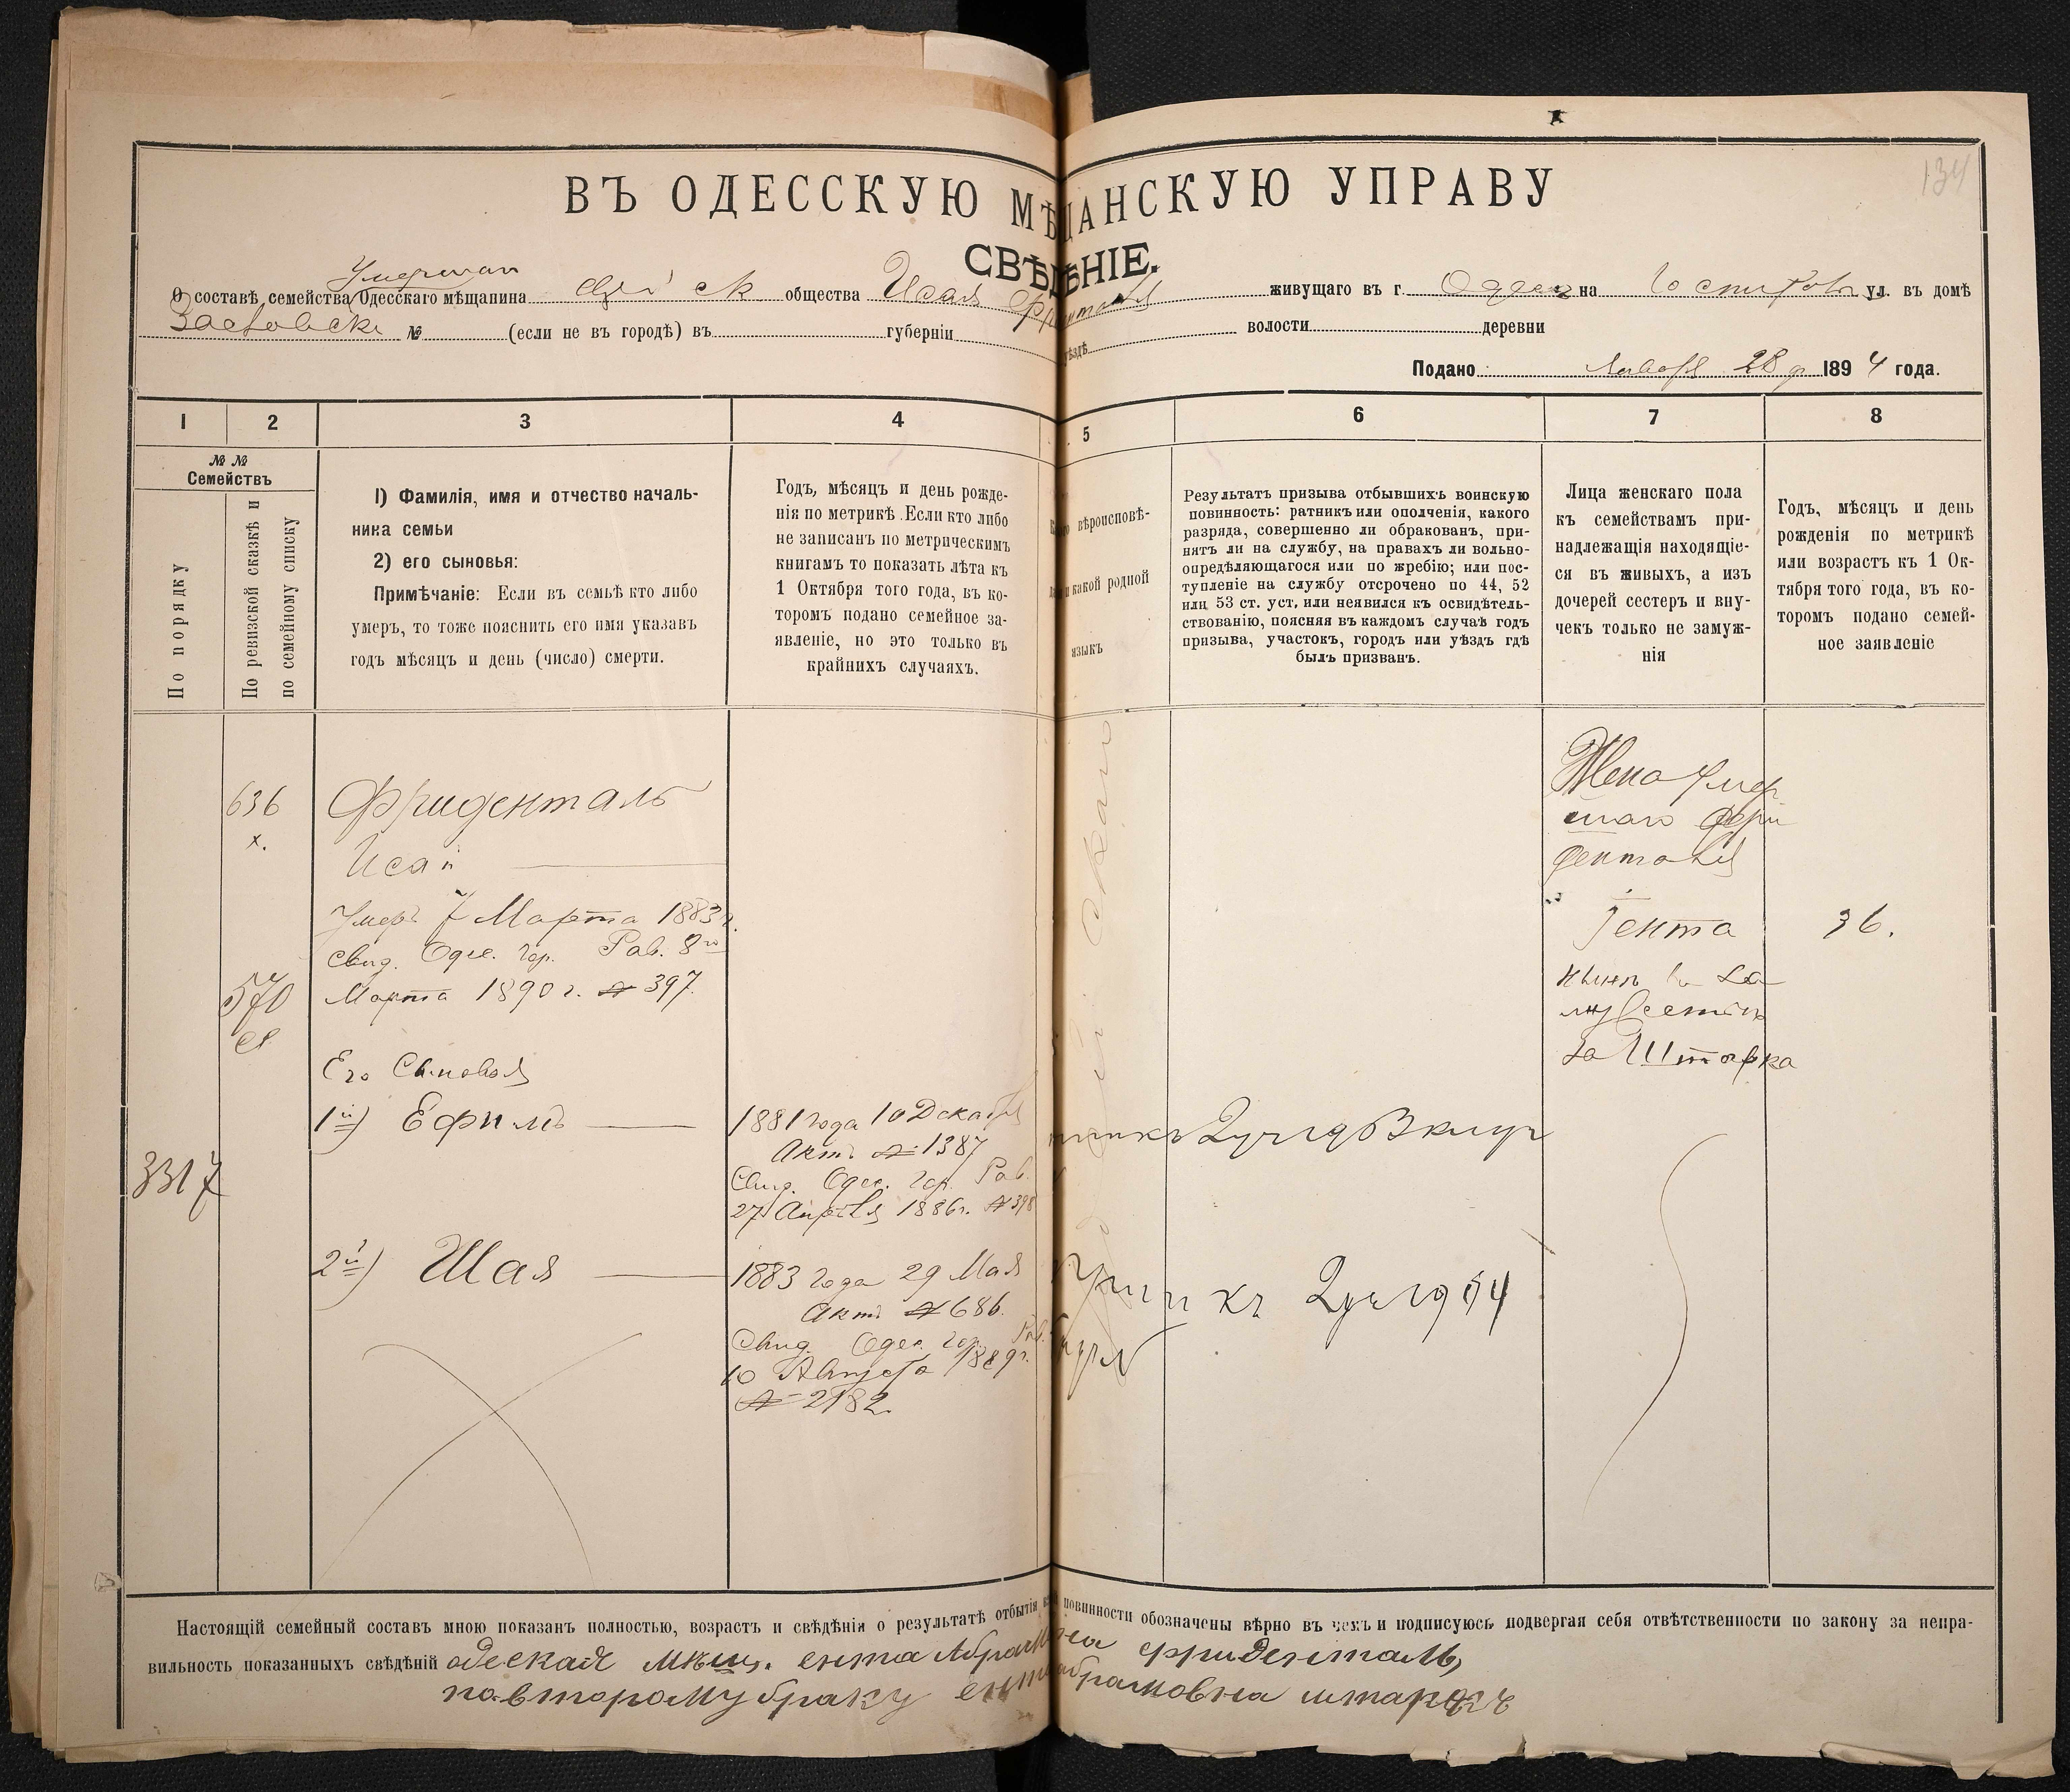 134
ВЪ ОДЕССКУЮ МѢЩАНСКУЮ УПРАВУ
СВѢДѢНІЕ.
Умершаго
О составѣ семейства Одесскаго мѣщанина общества Исая живущаго въ г. Одессѣ на ул. въ домѣ
№ (если не въ городѣ) въ губерніи уѣздѣ волости деревни
Подано Января 28 д 1894 года.
1 2 3 4 5 6 7 8
№№ Семействъ
По порядку
По ревизской сказкѣ и по семейному списку
1) Фамилія, имя и отчество началь-
ника семьи
2) его сыновья:
Примѣчаніе: Если въ семьѣ кто либо
умеръ, то тоже пояснить его имя указавъ
годъ мѣсяцъ и день (число) смерти.
Годъ, мѣсяцъ и день рожде-
нія по метрикѣ. Если кто либо
не записанъ по метрическимъ
книгамъ то показать лѣта къ
1 Октября того года, въ ко-
торомъ подано семейное за-
явленіе, но это только въ
крайнихъ случаяхъ.
вѣроисповѣ-
какой родной
языкъ
Результатъ призыва отбывшихъ воинскую
повинность: ратникъ или ополченія, какого
разряда, совершенно ли обракованъ, при-
нятъ ли на службу, на правахъ ли вольно-
опредѣляющагося или по жребію; или пос-
тупленіе на службу отсрочено по 44, 52
или 53 ст. уст, или неявился къ освидѣтель-
ствованію, поясняя въ каждомъ случаѣ годъ
призыва, участокъ, городъ или уѣздъ гдѣ
былъ призванъ.
Лица женскаго пола
къ семействамъ при-
надлежащія находящіе-
ся въ живыхъ, а изъ
дочерей сестеръ и вну-
чекъ только не замуж-
нія
Годъ, мѣсяцъ и день
рожденія по метрикѣ
или возрастъ къ 1 Ок-
тября того года, въ ко-
торомъ подано семей-
ное заявленіе
636
х.
Фриденталь
Исай
Умеръ 7 Марта 1883 г.
Свид. Одес. гор. Рав. 8го
Марта 1890 г. № 397.
570
Его Сыновья
1й) Ефимъ
1881 года 10 Декабря
Актъ № 1387
Свид. Одес. гор. Рав.
27 Апрѣля 1886 г. № 398
3317
2й) Шая
1883 года 29 Мая
Актъ № 686.
Свид. Одес. гор. Рав.
10 Августа 1889 г.
№ 2182.
Жена умер
шаго Фри
денталя
Гента
36.
нынѣ въ за
мужествѣ
за Штарка
Настоящій семейный составъ мною показанъ полностью, возрастъ и свѣдѣнія о результатѣ отбытія повинности обозначены вѣрно въ чемъ и подписуюсь подвергая себя отвѣтственности по закону за непра-
вильность показанныхъ свѣдѣній одеская мѣщ. ента Абрамовна фриденталь,
по второму браку ента абрамовна штаркъ